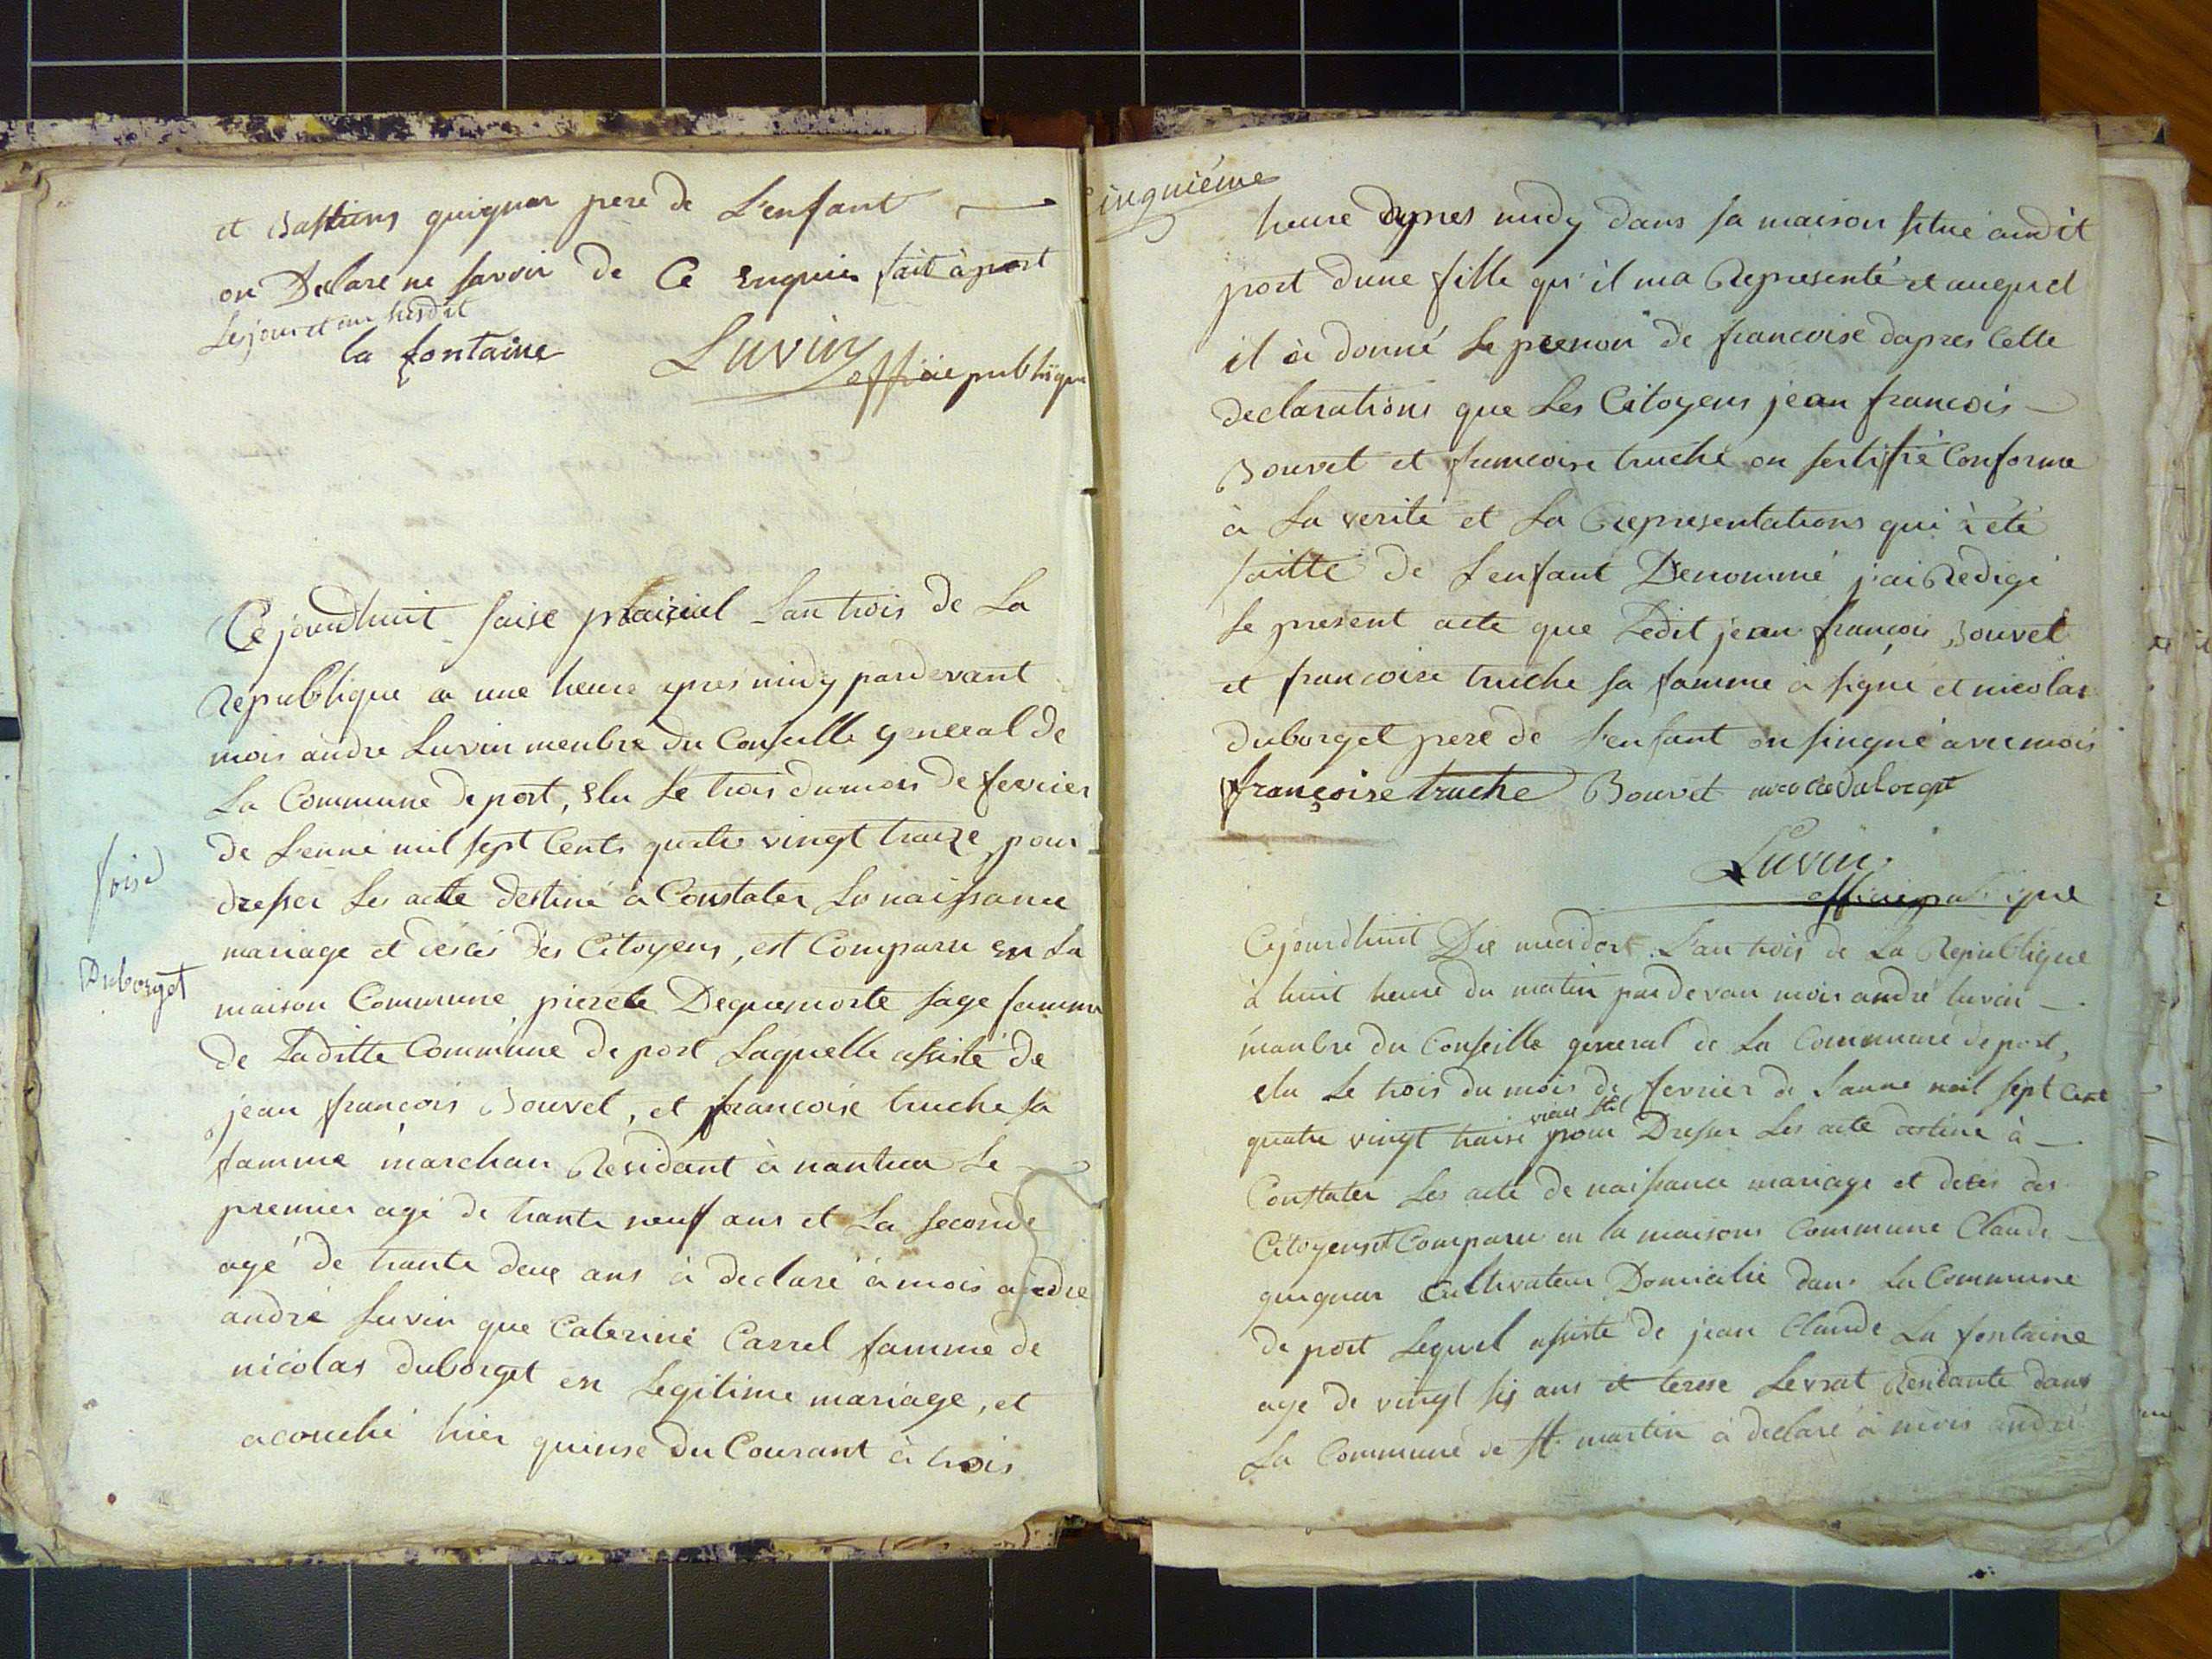 et Bastiens guignar pere de L'enfant
on Declare ne savoir de Ce enquis fait à port
Lejour et an susdit
la fontaine Luvin
officie publique
Ce jourdhuit saise prairial L'an trois de La
Republique a une heure apres midy pardevant
mois andre Luvin menbre du Conseille general de
La Commune de port, elu Le trois du mois de fevrier
de L'enné mil sept Cents quatre vingt traize pour
dresser Les acte destiné à Constater La naissance
mariage et desès des Citoyens, est Comparu en La
maison Commune pierete Dequemorte sage famme
de Laditte Commune de port Laquelle assisté de
jean françois Bouvet, et francoise truche sa
famme marchan Residant à nantua Le
premier agé de trante neuf ans et La seconde
agé de trante deux ans à declaré à mois andre
andré Luvin que Caterine Carrel famme de
nicolas duborget en Legitime mariage, et
acouché hier quinse du Courant à trois
foise
Duborget
Cinquiéme
heure apres midy dans sa maison situé audit
port dune fille qu'il ma Representé et auquel
il à donné Le prenon de francoise dapres Cette
declarations que Les Citoyens jean francois
Bouvet et francoise truche on sertifié Conforme
à La verité et La Representations qui à été
faitte de L'enfant Denommé j'ai Redigé
Le present acte que Ledit jean françois Bouvet
et francoise truche sa famme à signé et nicolas
duborget pere de L'enfant on singné avec mois
françoise truche Bouvet nicolas duborget
Luvin
officie publique
Cejourdhuit Dix mesidort L'an trois de La Republique
à huit heure du matin par devan mois andré luvin
manbre du Conseille general de La Commune de port,
elu Le trois du mois de fevrier de L'anne mil sept Cent
quatre vingt traise vieu stil pour Dresser Les acte destine à
Constater Les acte de naissance mariage et deces des
Citoyens et Comparu en la maisons Commune Claude
guignar Cultivateur Domicilié dans La Commune
de port Lequel assisté de jean Claude La fontaine
age de vingt six ans et terese Levrat Residante dans
La Commune de St. martin à declaré à mois andré